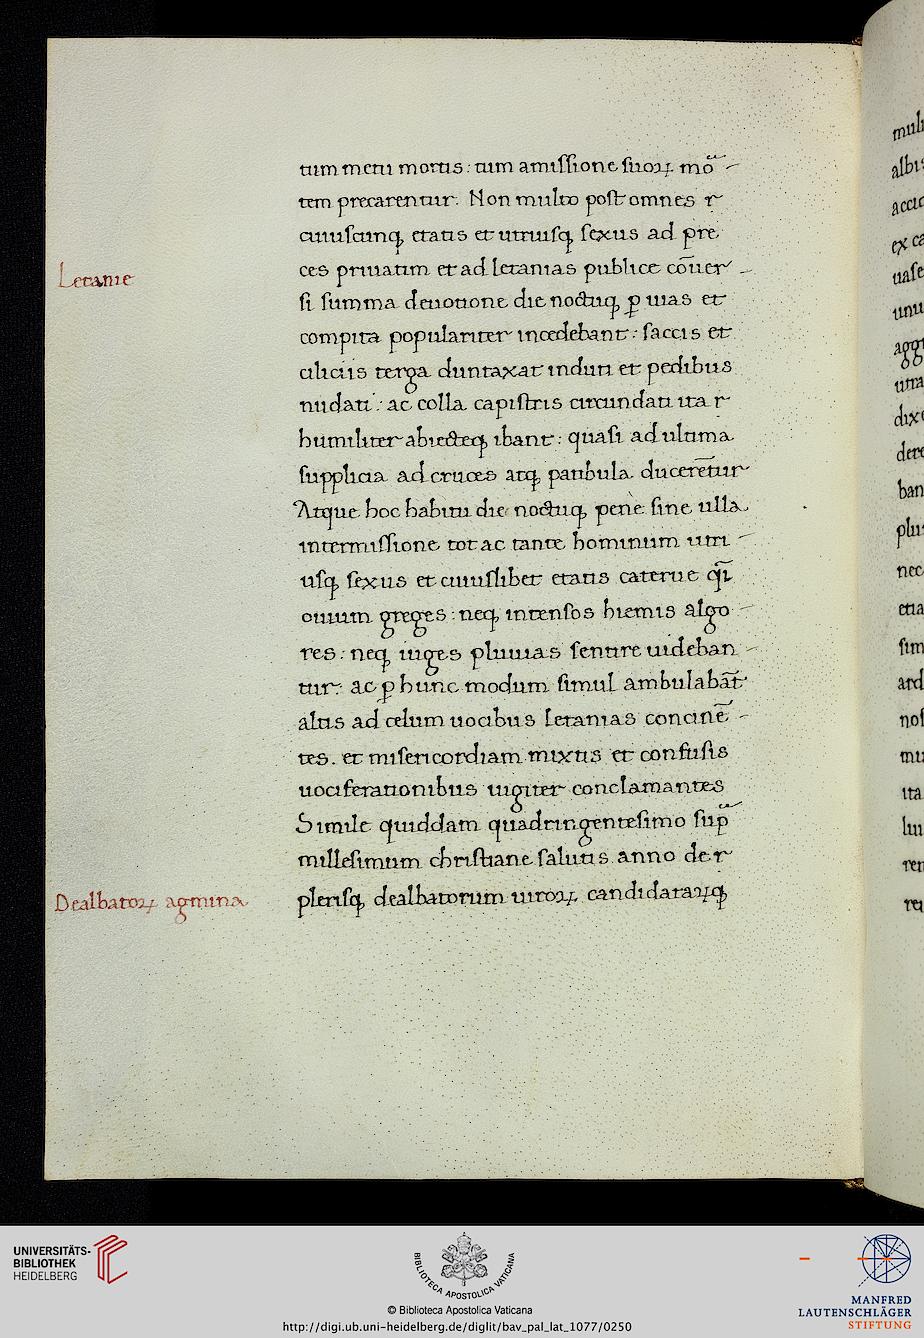 Letanie
Dealbatoꝝ agmina
tum metu mortis: tum amissione suoꝝ moᷓ
tem precarentur. Non multo post omnes r
cuiuscunqꝫ etatis et utriusqꝫ sexus ad pre
ces priuatim et ad letanias publice cōuer
si summa deuotione die noctuqꝫ ꝑ uias et
compita populariter incedebant: saccis et
ciliciis terga duntaxat induti et pedibus
nudati: ac colla capistris circundati ita r
humiliter abiecteqꝫ ibant: quasi ad ultima
supplicia ad cruces atqꝫ patibula ducerētur
Atque hoc habitu die noctuqꝫ penè sine ulla
intermissione tot ac tante hominum utri
usqꝫ sexus et cuiuslibet etatis caterue qiᷓ
ouium greges: neqꝫ intensos hiemis algo
res: neqꝫ iuges pluuias sentire uideban
tur: ac ꝑ hunc modum simul ambulabāt
altis ad celum uocibus letanias concinē
tes. et misericordiam mixtis et confusis
uociferationibus iugiter conclamantes
Simile quiddam quadringentesimo supᷓ
millesimum christiane salutis anno de r
plerisqꝫ dealbatorum uiroꝝ candidataꝝqꝫ
mul
albi
accic
ex ca
uase
unu
agg
utra
dixe
dere
ban
plu
nec
etia
sim
ard
nos
mu
ita
lui
rer
UNIVERSITÄTS-
BIBLIOTHEK
HEIDELBERG
BIBLIOTECA APOSTOLICA VATICANA
© Biblioteca Apostolica Vaticana
http://digi.ub.uni-heidelberg.de/diglit/bav_pal_lat_1077/0250
MANFRED
LAUTENSCHLÄGER
STIFTUNG